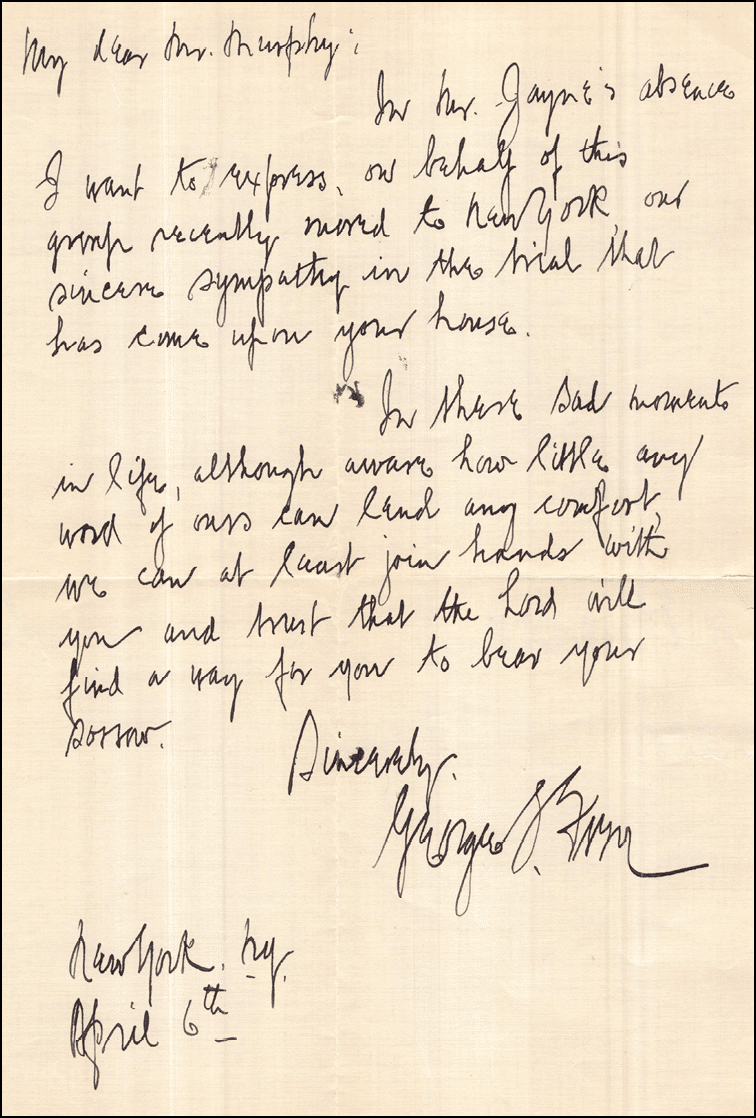 My dear Mr. Murphy:
In Mr. Jayne's absence
I want to express, on behalf of this
group recently moved to New York, our
sincere sympathy in the trial that
has come upon your house.
In these sad moments
in life, although aware how little any
word of ours can lend any comfort,
we can at least join hands with
you and trust that the Lord will
find a way for you to bear your
sorrow.
Sincerely,
George S.
New York, NY.
April 6th